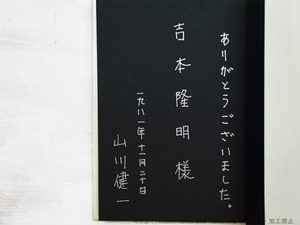 ありがとうございました。
吉本隆明様
一九八一年十一月二十日
山川健一
加工禁止